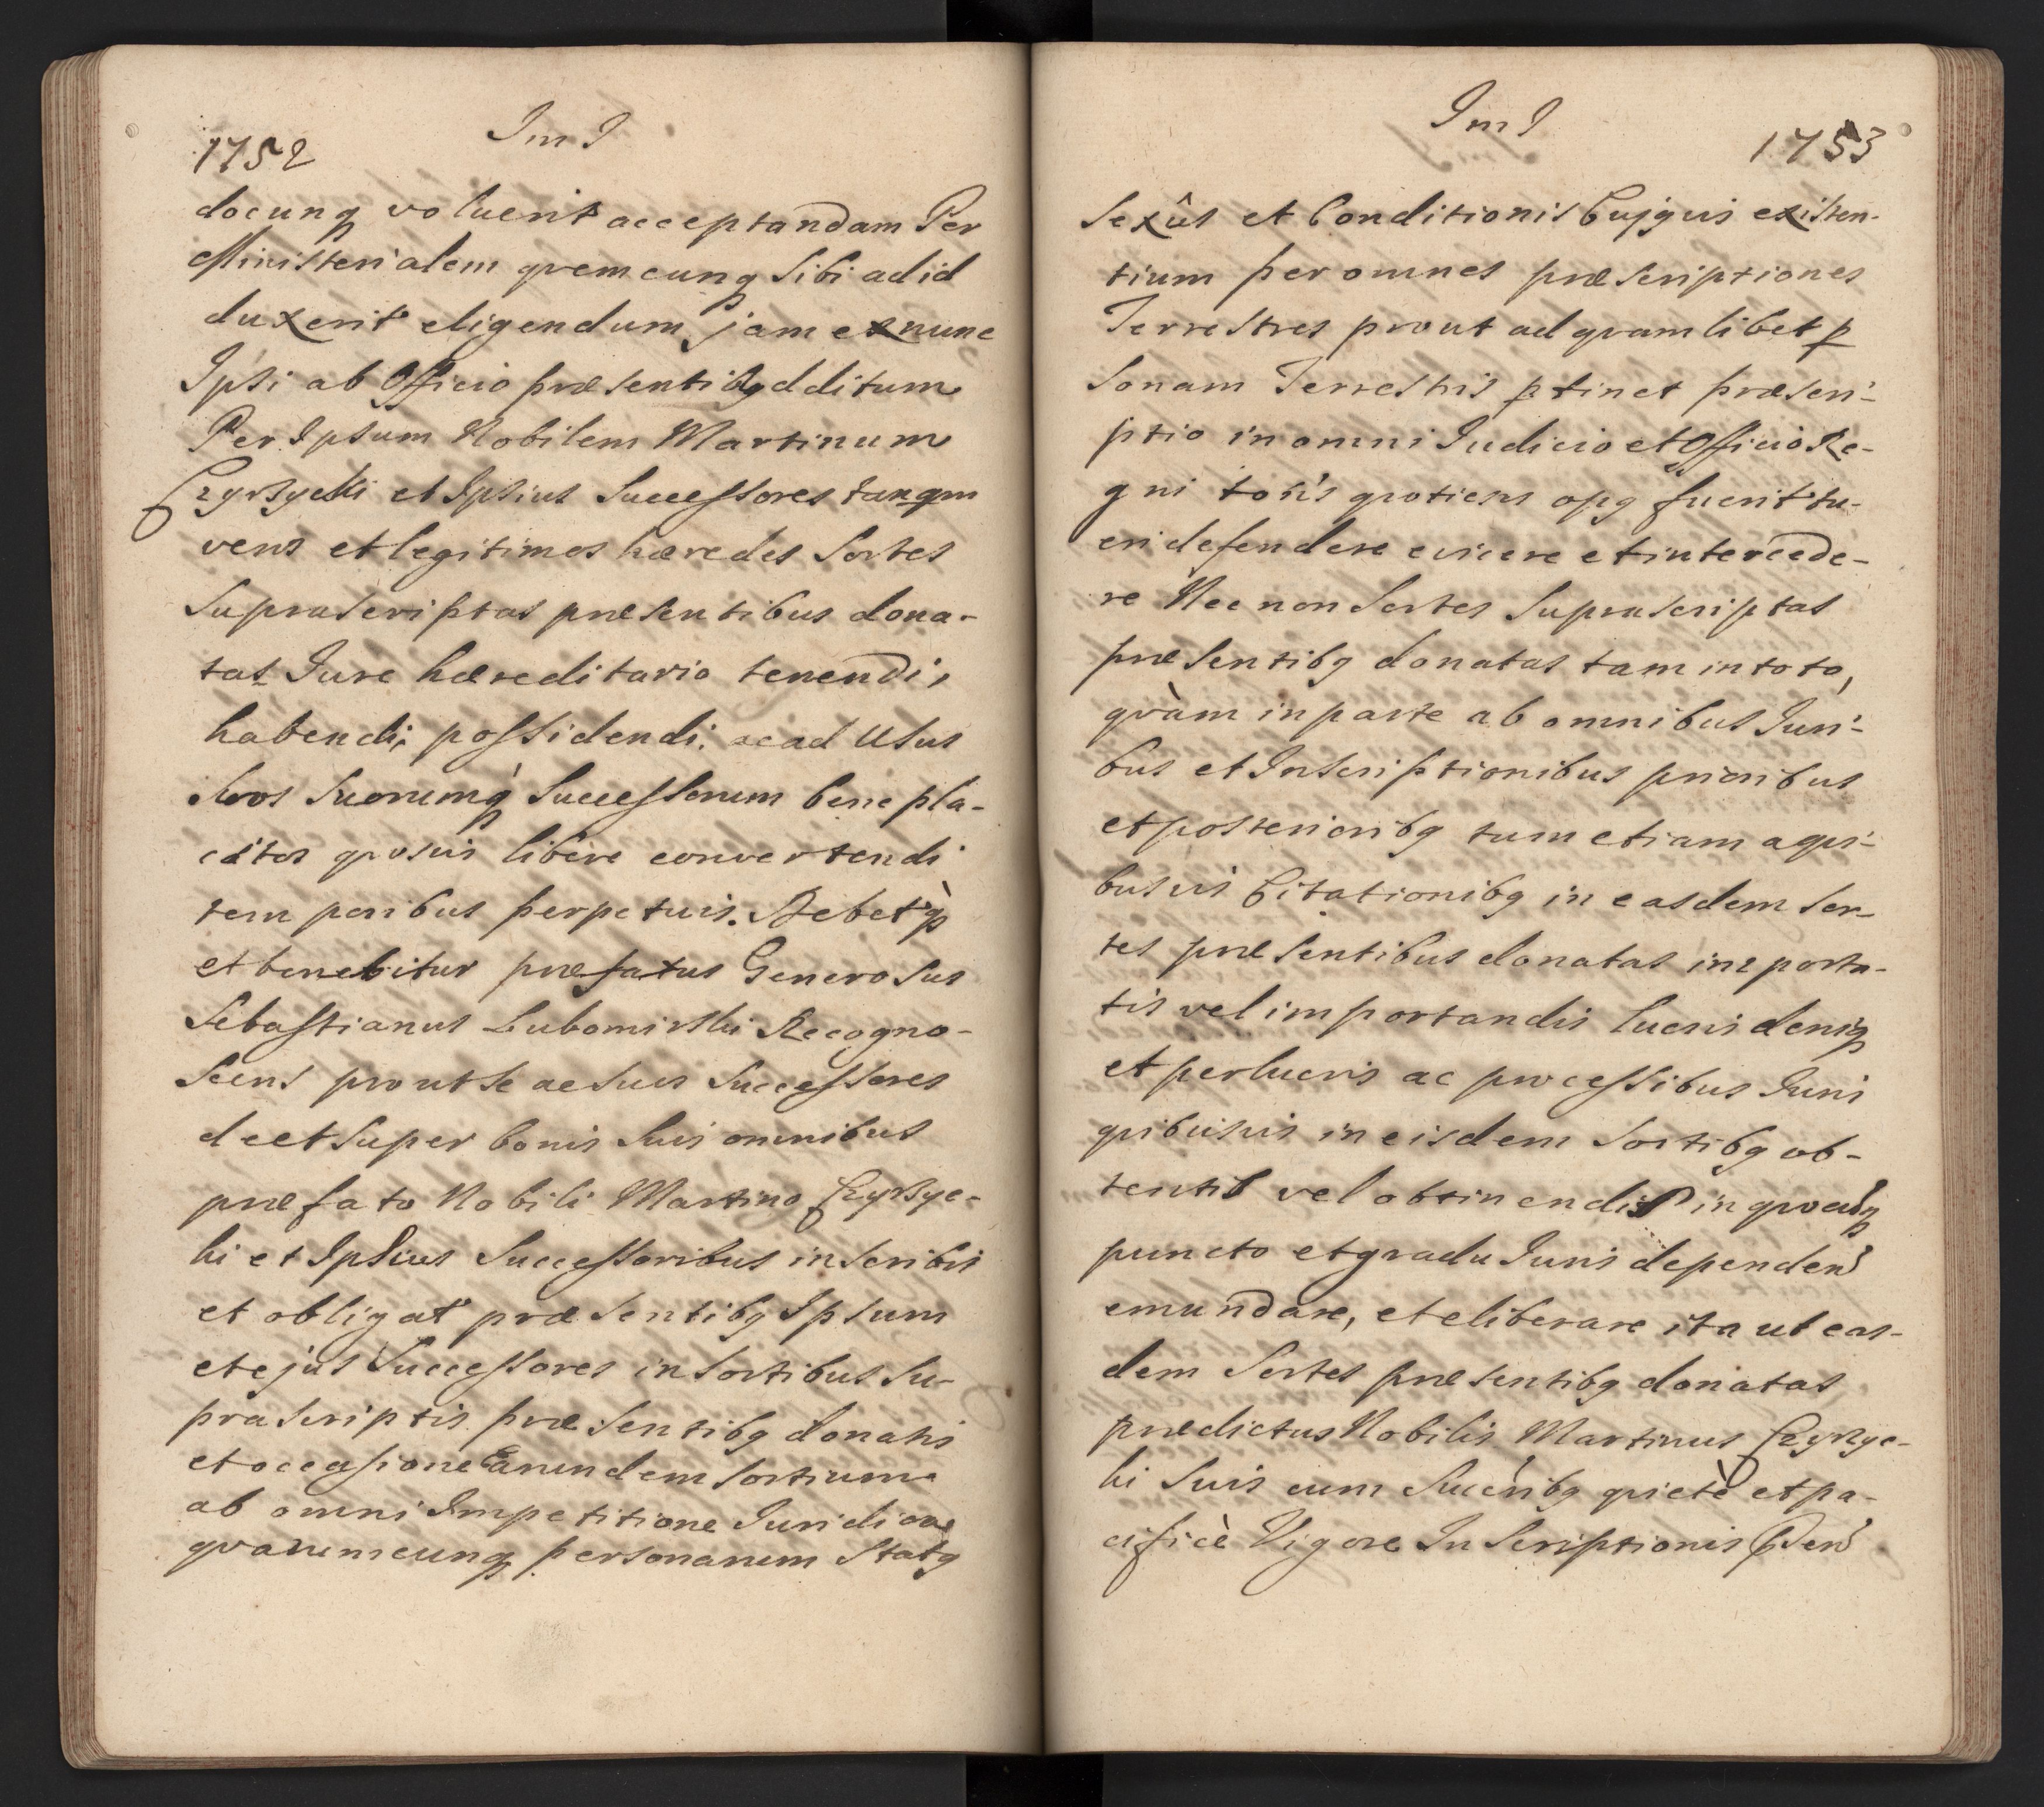 1752
Im I
docunq voluerit acceptandam Per
Ministerialem qvemcunq Sibi ad id
duxerit eligendum, jam ex nunc
Ipsi ab Officio præsentibq dditum
Per Ipsum Nobilem Martinum
Czyrzycki et Ipsius Successores tanqm
veros et legitimos hæredes Sortes
Suprascriptas præsentibus dona-
tas Jure hæreditario tenendi,
habendi, possidendi. ac ad Usus
Suos Suorumq Successorum bene pla-
citos qvosvis libere convertendi
temporibus perpetuis. Debetq
et tenebitur præfatus Generosus
Sebastianus Lubomirski Recogno-
Scens prout Se ac Suos Successores
de et Super bonis Suis omnibus
præfato Nobili Martino Czyrzyc-
ki et Ipsius Successoribus inscribit
et obligat præsentibq Ipsum
et ejus Successores in Sortibus Su-
prascriptis præsentibq donatis
et occasione Earundem Sortium
ab omni Impetitione Juridica
qvarumcunq personarum Statq
Im I
1753
Sexûs et Conditionis Cujqvis existen-
tium per omnes præscriptiones
Terrestres prout ad qvamlibet p
Sonam Terrestris ptinet præscri-
ptio in omni Judicio et Officio Re-
gni totis qvotiens opq fuerit tu-
eri defendere evicere et intercede-
re Nec non Sortes Suprascriptas
præsentibq donatas tam in toto,
qvàm in parte ab omnibus Juri-
bus et Inscriptionibus prioribus
et posterioribq tum etiam a qvi-
busvis Citationibq in easdem Sor-
tes præsentibus donatas importa-
tis vel importandis lucris deniq
et perlucris ac processibus Juris
qvibusvis in eisdem Sortibq ob-
tentis vel obtinendis in qvocunq
puncto et gradu Juris dependen
emundare, et eliberare ita ut eas-
dem Sortes præsentibq donatas
prædictus Nobilis Martinus Czyrzyc-
ki Suis cum Succribq qviete et pa-
cificè Vigore Inscriptionis Psen